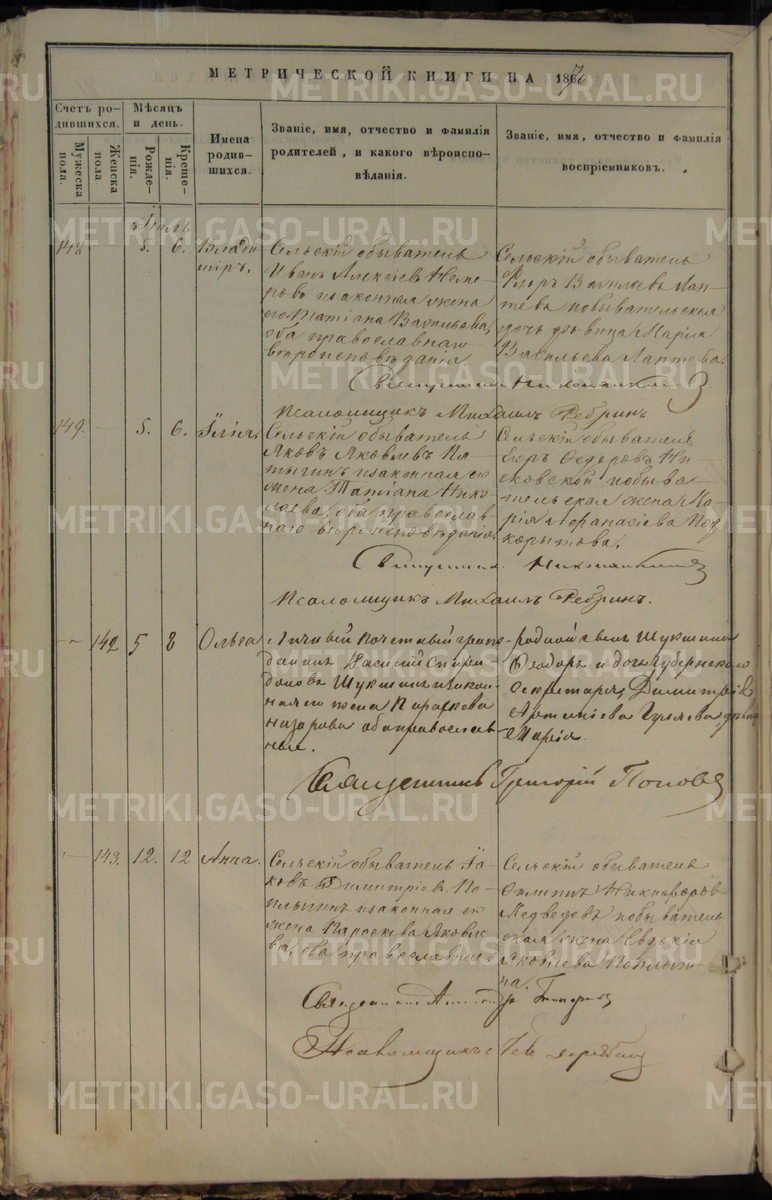 МЕТРИЧЕСКОЙ КНИГИ НА 1870
Счетъ ро-
дившихся.
Мужеска
пола.
Женска
пола.
Мѣсяцъ
и день.
Рожде-
нія.
Креще-
нія.
Имена
родив-
шихся.
Званіе, имя, отчество и фамилія
родителей, и какого вѣроиспо-
вѣданія.
Званіе, имя, отчество и фамилія
воспріемниковъ.
Іюль
148 5. 6. Влади
міръ.
Сельскій обыватель
Иванъ Алексіевъ
и законная жена
его Татіана Васильева,
оба православнаго
вѣроисповѣданія
Сельскій обыватель
Васильевъ Лап-
тевъ и обывательская
дочь дѣвица Марія
Васильева Лаптева.
Священникъ
Псаломщикъ Михаилъ Ребринъ
149. 5. 6. Илія.
Сельскій обыватель
Яковъ Яковлевъ Пя-
тыгинъ и законная его
жена Татіана Нико
лаева, оба православ
наго вѣроисповѣданія.
Сельскій обыватель
Егоръ Федоровъ
и обыва-
тельская жена Ма-
рія Афанасіева Под
корытова.
Священникъ
Псаломщикъ Михаилъ Ребринъ.
142 5 8 Ольга
Личный почетный граж-
данинъ Василій Спири-
доновъ Шукшинъ и закон-
ная его жена Параскева
Назарова оба православ-
ные.
родной Шукшина
Феодоръ и дочь губернскаго
секретаря, Димитрія
Артеміева Гуляева дѣвица
Марія.
Священникъ Григорій Поповъ
143. 12. 12 Анна.
Сельскій обыватель Іа-
ковъ Димитріевъ По-
плыгинъ и законная его
жена Параскева Яковле
ва, оба православные
Сельскій обыватель
Филиппъ Никифоровъ
Медведевъ и обыватель
ская жена Евдокія
Яковлева Поплыги
на.
Священникъ
Псаломщикъ
METRIKI.GASO-URAL.RU